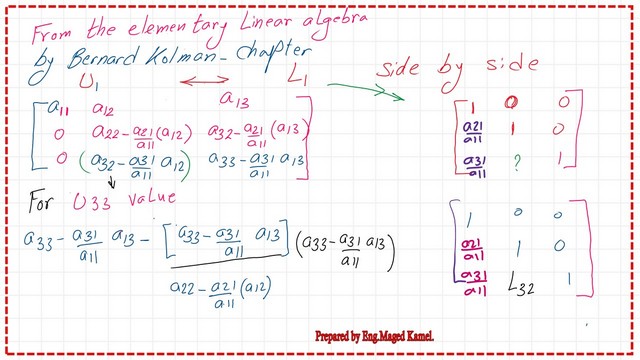 From the elementary Linear algebra
by Bernard Kolman - Chapter
U1 ↔ L1
side by side
a11 a12 a13
0 a22 - a21/a11 (a12) a32 - a21/a11 (a13)
0 (a32 - a31/a11 a12) a33 - a31/a11 a13
1 0 0
a21/a11 1 0
a31/a11 ? 1
For U33 value
a33 - a31/a11 a13 - [a33 - a31/a11 a13] / a22 - a21/a11 (a12) (a33 - a31/a11 a13)
1 0 0
a21/a11 1 0
a31/a11 L32 1
Prepared by Eng.Maged Kamel.